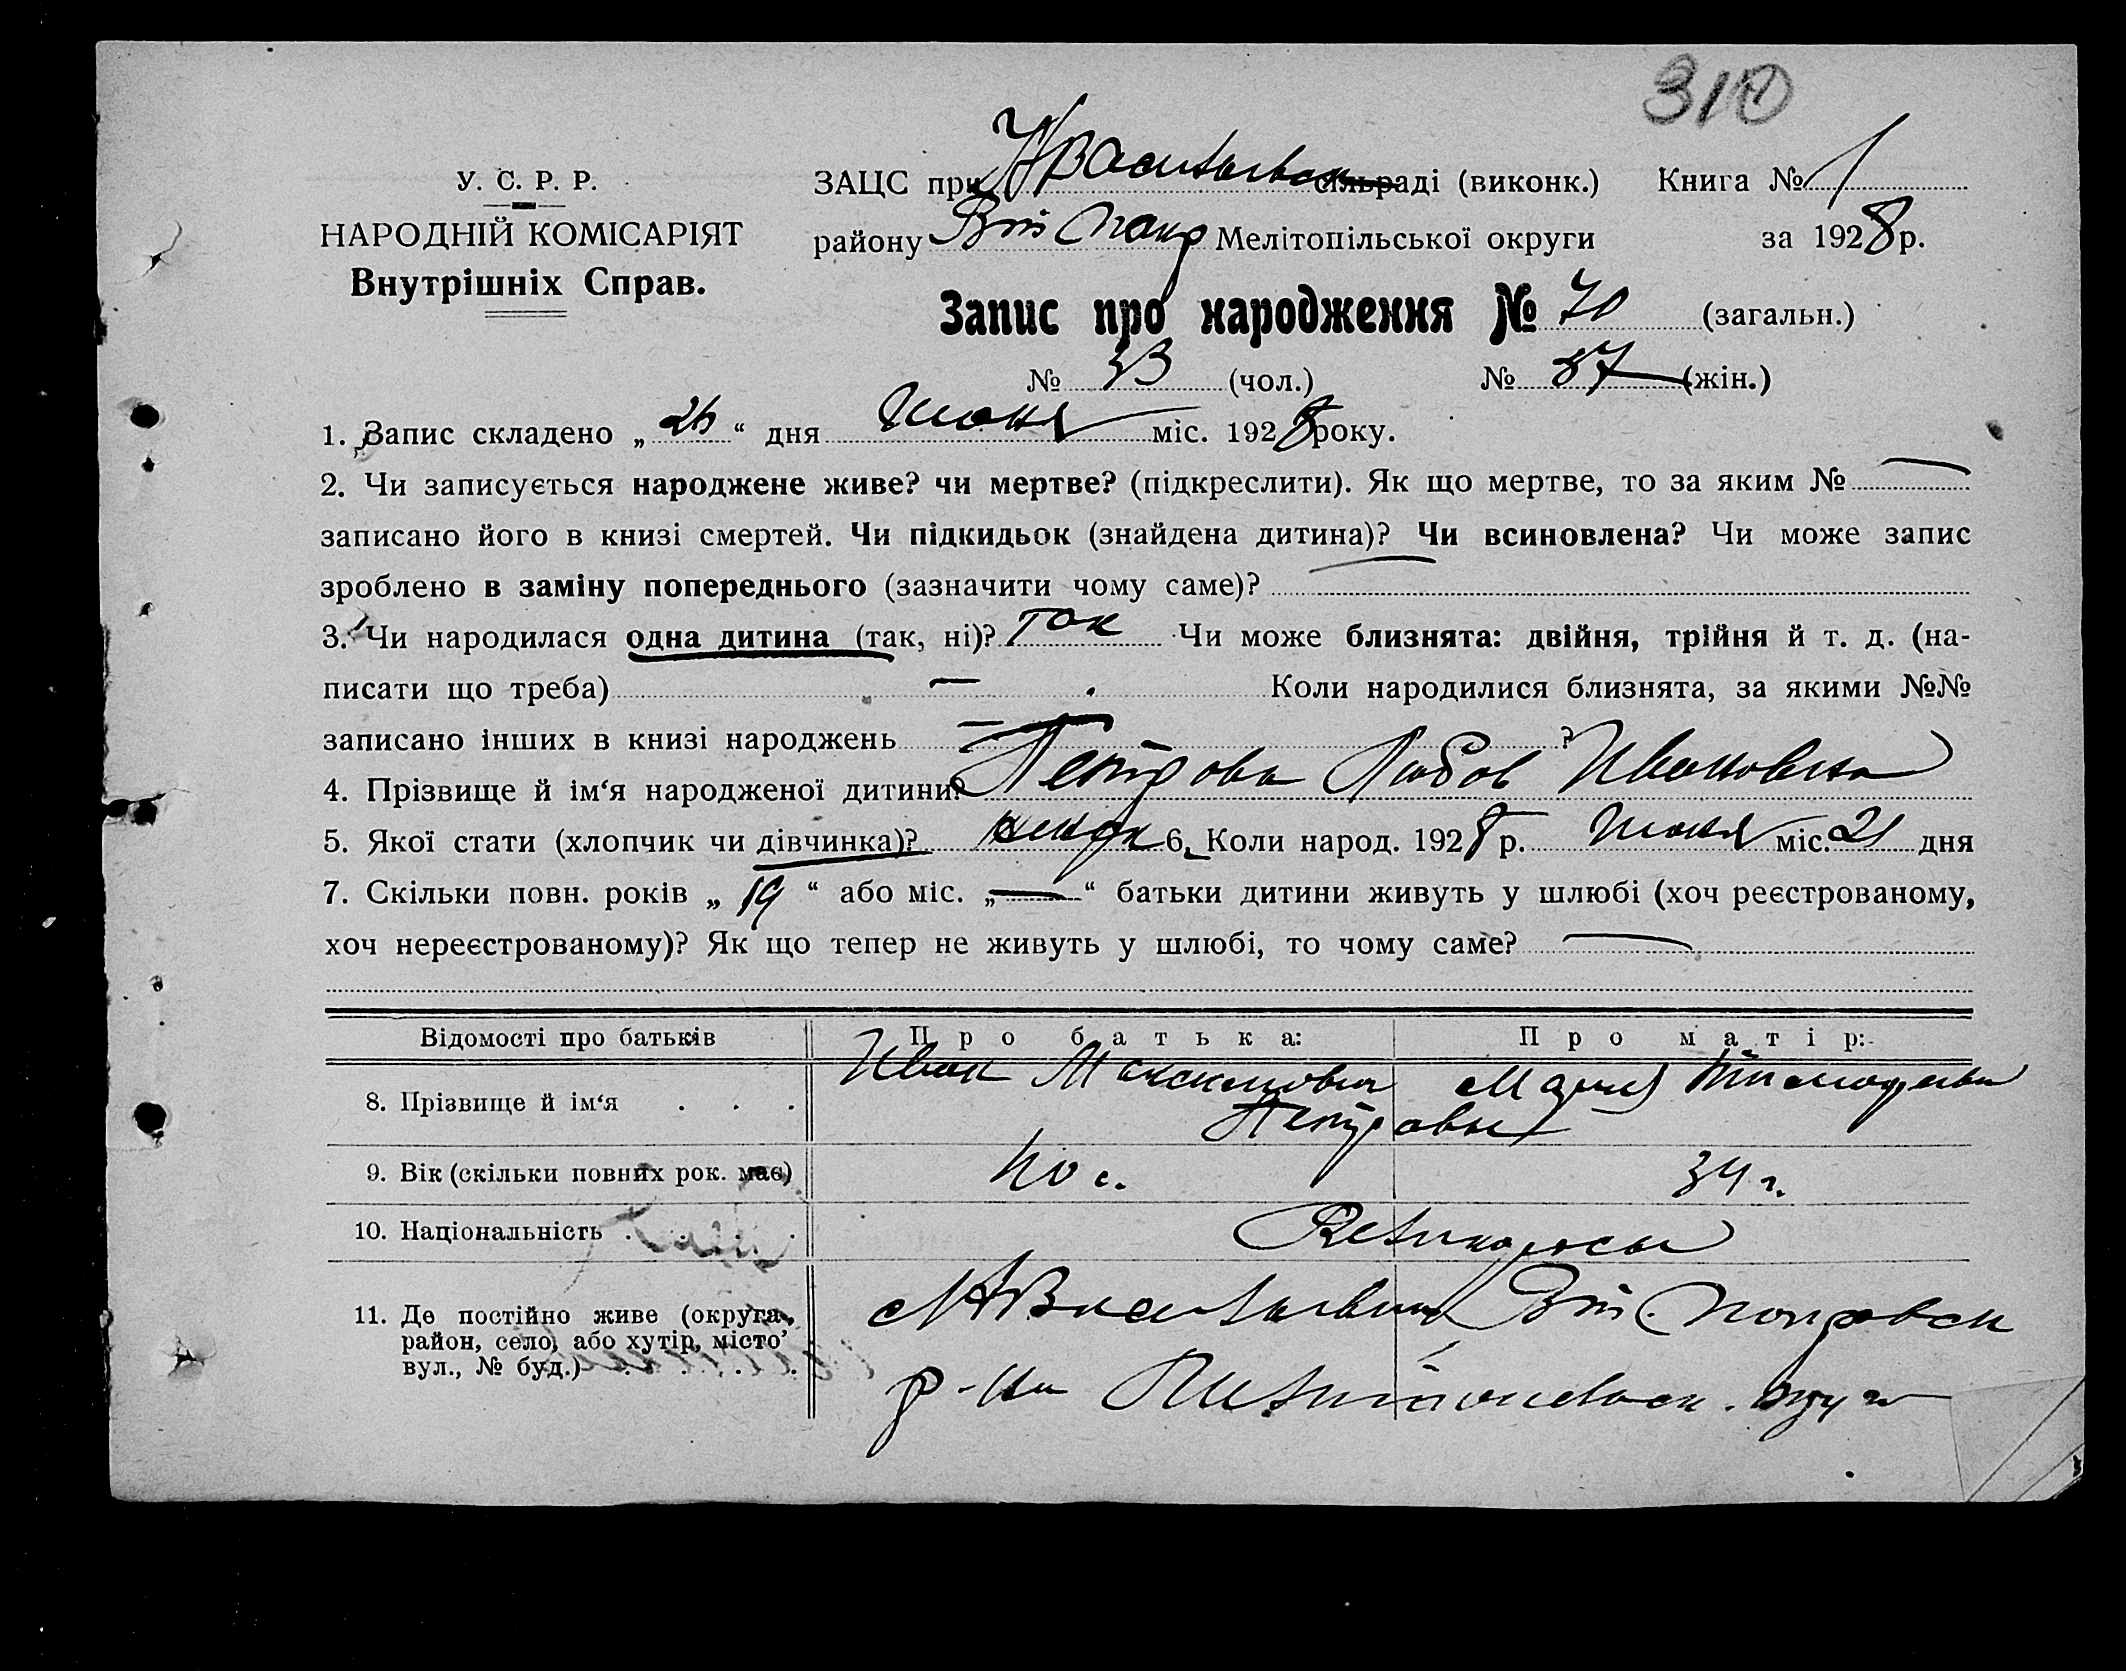 310
У. С. Р. Р.
НАРОДНІЙ КОМІСАРІЯТ
Внутрішніх Справ.
ЗАЦС при сільраді (виконк.) Книга № 1
району Мелітопільської округи за 1928 р.
Запис про народження № 70 (загальн.)
№ 33 (чол.) № 37 (жін.)
1. Запис складено „ “ дня Июня міс. 1928 року.
2. Чи записується народжене живе? чи мертве? (підкреслити). Як що мертве, то за яким № —
записано його в книзі смертей. Чи підкидьок (знайдена дитина)? Чи всиновлена? Чи може запис
зроблено в заміну попереднього (зазначити чому саме)?
3. Чи народилася одна дитина (так, ні)? так Чи може близнята: двійня, трійня й т. д. (на-
писати що треба) — Коли народилися близнята, за якими №№
записано інших в книзі народжень — ?
4. Прізвище й ім‘я народженої дитини? Петрова Любов Ивановна
5. Якої стати (хлопчик чи дівчинка)? 6. Коли народ. 1928 р. Июня міс. 21 дня
7. Скільки повн. років „ 19 “ або міс. „ — “ батьки дитини живуть у шлюбі (хоч реєстрованому,
хоч нереєстрованому)? Як що тепер не живуть у шлюбі, то чому саме? —
Відомості про батьків Про батька: Про матір:
8. Прізвище й ім‘я . . . Иван Максимович Мария Тимофеевна
Петровы
9. Вік (скільки повних рок. має) 40 г. 34 г.
10. Національність . . . . Великоросы
11. Де постійно живе (округа, район, село, або хутір, місто, вул., № буд.) . . . .
р-на округ